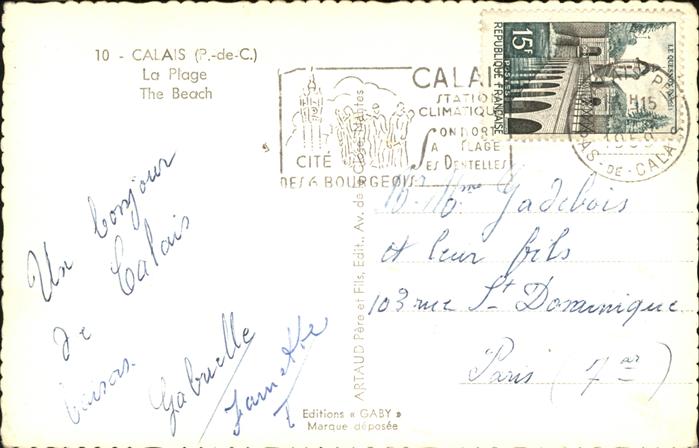 10 - CALAIS (P.-de-C.)
La Plage
The Beach
Un bonjour
de Calais
baisers
Gabrielle
CITÉ
DES 6 BOURGEOIS
CALAIS
STATION
CLIMATIQUE
SON PORT
SA PLAGE
SES DENTELLES
15F
POSTES
REPUBLIQUE FRANÇAISE
15
1959
PAS-DE-CALAIS
Mme Gadebois
et leur fils
103 rue St Dominique
Paris (7ar)
ARTAUD Père et Fils, Edit., Av. de la Close, Nantes
Editions « GABY »
Marque déposée